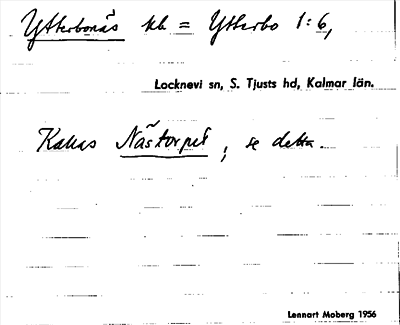 Ytterbonäs hl = Ytterbo 1:6,
Locknevi sn, S. Tjusts hd, Kalmar län.
Kallas Nästorpet, se detta.
Lennart Moberg 1956